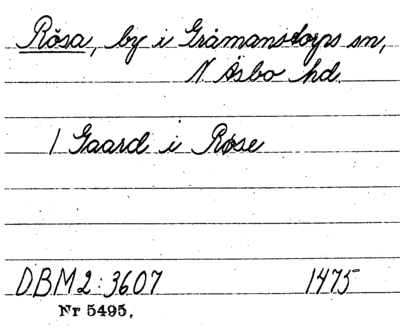 Rösa, by i Gråmanstorps sn,
N Åsbo hd.
1 Gaard i Røse
DBM 2: 3607 1475
Nr 5495.